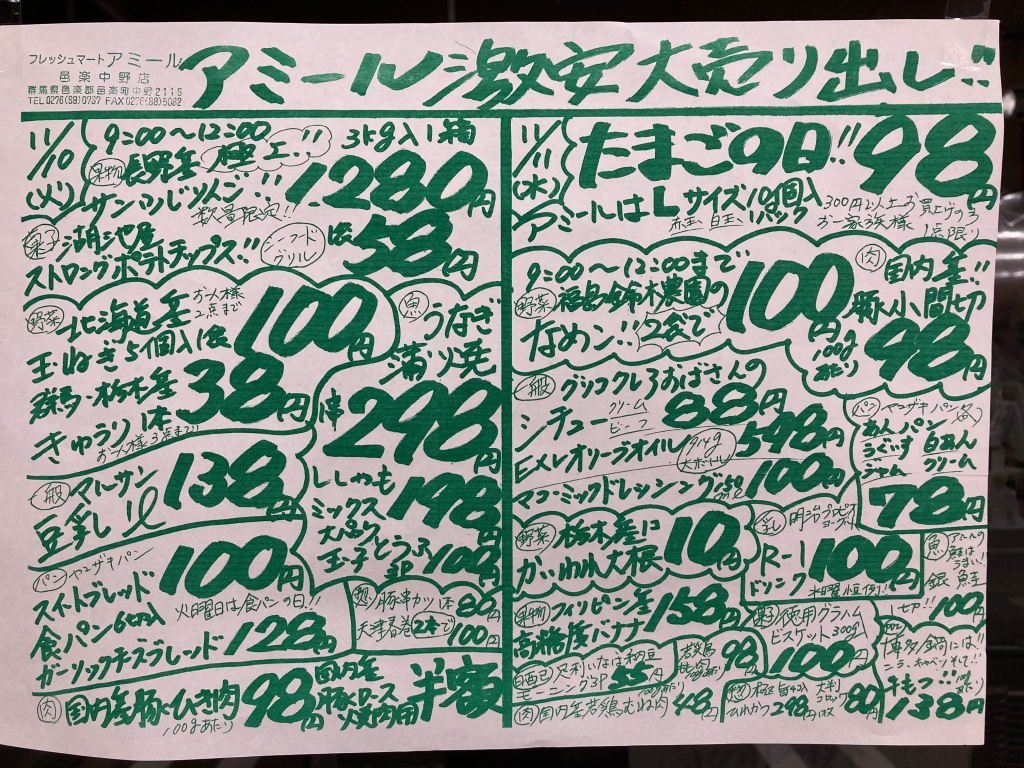 フレッシュマートアミール
邑楽中野店
群馬県邑楽郡邑楽町中野2116
TEL0276(89)0767 FAX0276(88)5082
アミール激安大売り出し!!
11/10(火)
9:00〜12:00
3kg入1箱
果物 長野産 極上!!
サンふじりんご!! 1,280円
数量限定!!
菓子 湖池屋
ストロングポテトチップス!!
シーフード
グリル
1袋 58円
野菜 北海道産
お一人様
2点まで
玉ねぎ5個入1袋 100円
群馬・栃木産
きゅうり1本 38円
お一人様3点まで!!
魚 うなぎ
蒲焼
1串 298円
ししゃも
ミックス
大パック 198円
玉子とうふ
3P 100円
一般 マルサン
豆乳1ℓ 138円
パン ヤマザキパン
スイートブレッド 100円
火曜日は食パンの日!!!
食パン6切入
ガーリックチーズブレッド 128円
惣 豚串カツ1本 80円
天津春巻2本で 100円
肉 国内産豚ひき肉
100gあたり 98円
国内産
豚肩ロース
焼肉用 半額
11/11(水)
たまごの日!! 98円
アミールはLサイズ10個入
赤玉 白玉 1パック
300円以上お買上げの方
お一家族様1点限り
9:00〜12:00まで
野菜 福島・鈴木農園の
なめこ!! 2袋で 100円
肉 国内産!!
豚小間切
100gあたり 98円
一般 グリコクレアおばさんの
シチュー
クリーム
ビーフ
88円
EXレオリーブオイル
914g
大ボトル
598円
マコーミックドレッシング
100円
パン ヤマザキパン各
あんパン
うぐいす 白あん
ジャム クリーム
78円
野菜 栃木産!!
かいわれ大根 10円
乳 明治
R-1
ドリンク 100円
水曜恒例!!
魚 アミールの
鮭はうまい!!
銀鮭
1切!! 100円
果物 フィリピン産
高糖度バナナ 158円
菓子 徳用グラハム
ビスケット300g
100円
日配 足利いなば納豆
モーニング3P 55円
若鶏
もも肉
100gあたり 98円
肉 国内産若鶏むね肉
100gあたり 48円
惣
ひれかつ 298円
大判
コロッケ
80円
博多鍋には!!
ニラ、キャベツそして!!
牛もつ!!
100gあたり
138円